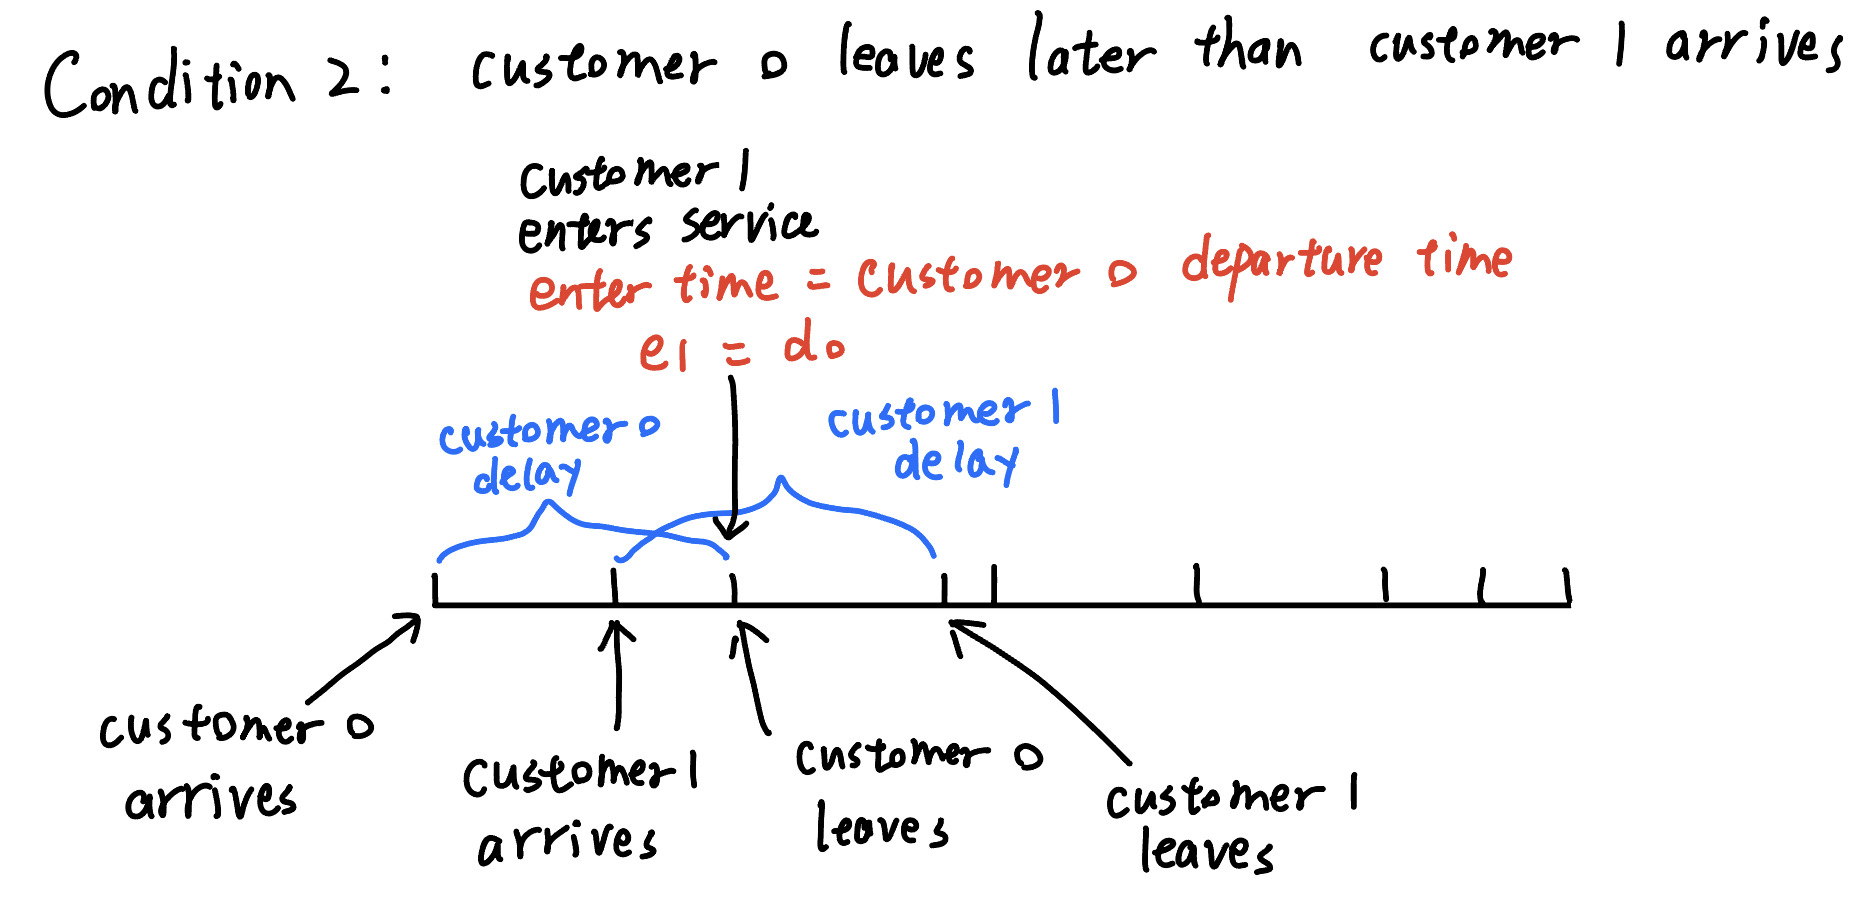 Condition 2: customer 0 leaves later than customer 1 arrives
customer 1
enters service
enter time = customer 0 departure time
e1 = d0
customer 0
delay
customer 1
delay
customer 0
arrives
customer 1
arrives
customer 0
leaves
customer 1
leaves